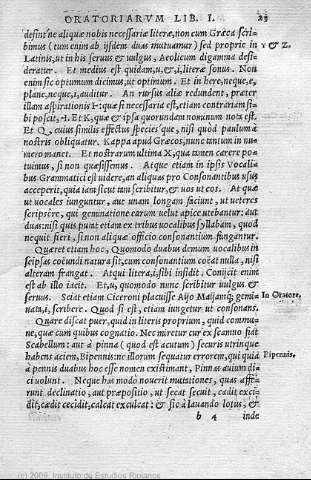 ORATORIARVM LIB. I. 23
desint ne aliquæ nobis necessariæ literæ, non cum Græca scri-
bimus (tum enim ab ijsdem duas mutuamur) sed proprie in Y & Z.
Latinis, ut in his seruus & uulgus, Aeolicum digamma desi-
deratur. Et medius est quidam, u, & i, literæ sonus. Non
enim sic optumum dicimus, ut optimum. Et in here, neque e,
plane, neque i, auditur. An rursus aliæ redundent, præter
illam aspirationis
poscit,
Et Q, cuius similis effectus speciesque, nisi quòd paulum à
nostris obliquatur. Kappa apud Græcos, nunc tantum in nu-
mero manet. Et nostrarum ultima X, qua tamen carere po-
tuimus, si non quæsissemus. Atque etiam in ipsis Vocali-
bus Grammatici est uidere, an aliquas pro Consonantibus usus
acceperit, quia iam sicut tam scribitur, & uos ut cos. At quæ
ut uocales iunguntur, aut unam longam faciunt, ut ueteres
scripsêre, qui geminatione earum uelut apice utebantur: aut
duas: nisi quis putat etiam ex tribus uocalibus syllabam, quod
nequit fieri, si non aliquæ officio consonantium fungantur.
Quæret etiam hoc, Quomodo duabus demum uocalibus in
seipsas coëundi natura sit, cum consonantium coëat nulla, nisi
alteram frangat. Atqui litera, i, sibi insidit. Coniicit enim
est ab illo iacit. Et, u, quomodo nunc scribitur uulgus &
seruus. Sciat etiam Ciceroni placuisse Aijo Maijamque gemi- In Oratore.
nata, i, scribere. Quod si est, etiam iungetur ut consonans.
Quare discat puer, quid in literis proprium, quid commu-
ne, quæ cum quibus cognatio. Nec miretur cur ex scamno fiat
Scabellum: aut à pinna (quod est acutum) securis utrinque
habens aciem, Bipennis: ne illorum sequatur errorem, qui quia Bipennis.
à pennis duabus hoc esse nomen existimant, Pinnas auium di-
ci uolunt. Neque has modò nouerit mutationes, quas affe-
runt declinatio, aut præpositio, ut secat secuit, cadit exci-
dit, cædit cecidit, calcat exculcat: & sic à lauando lotus, &
b 4 inde
(c) 2009, Instituto de Estudios Riojanos